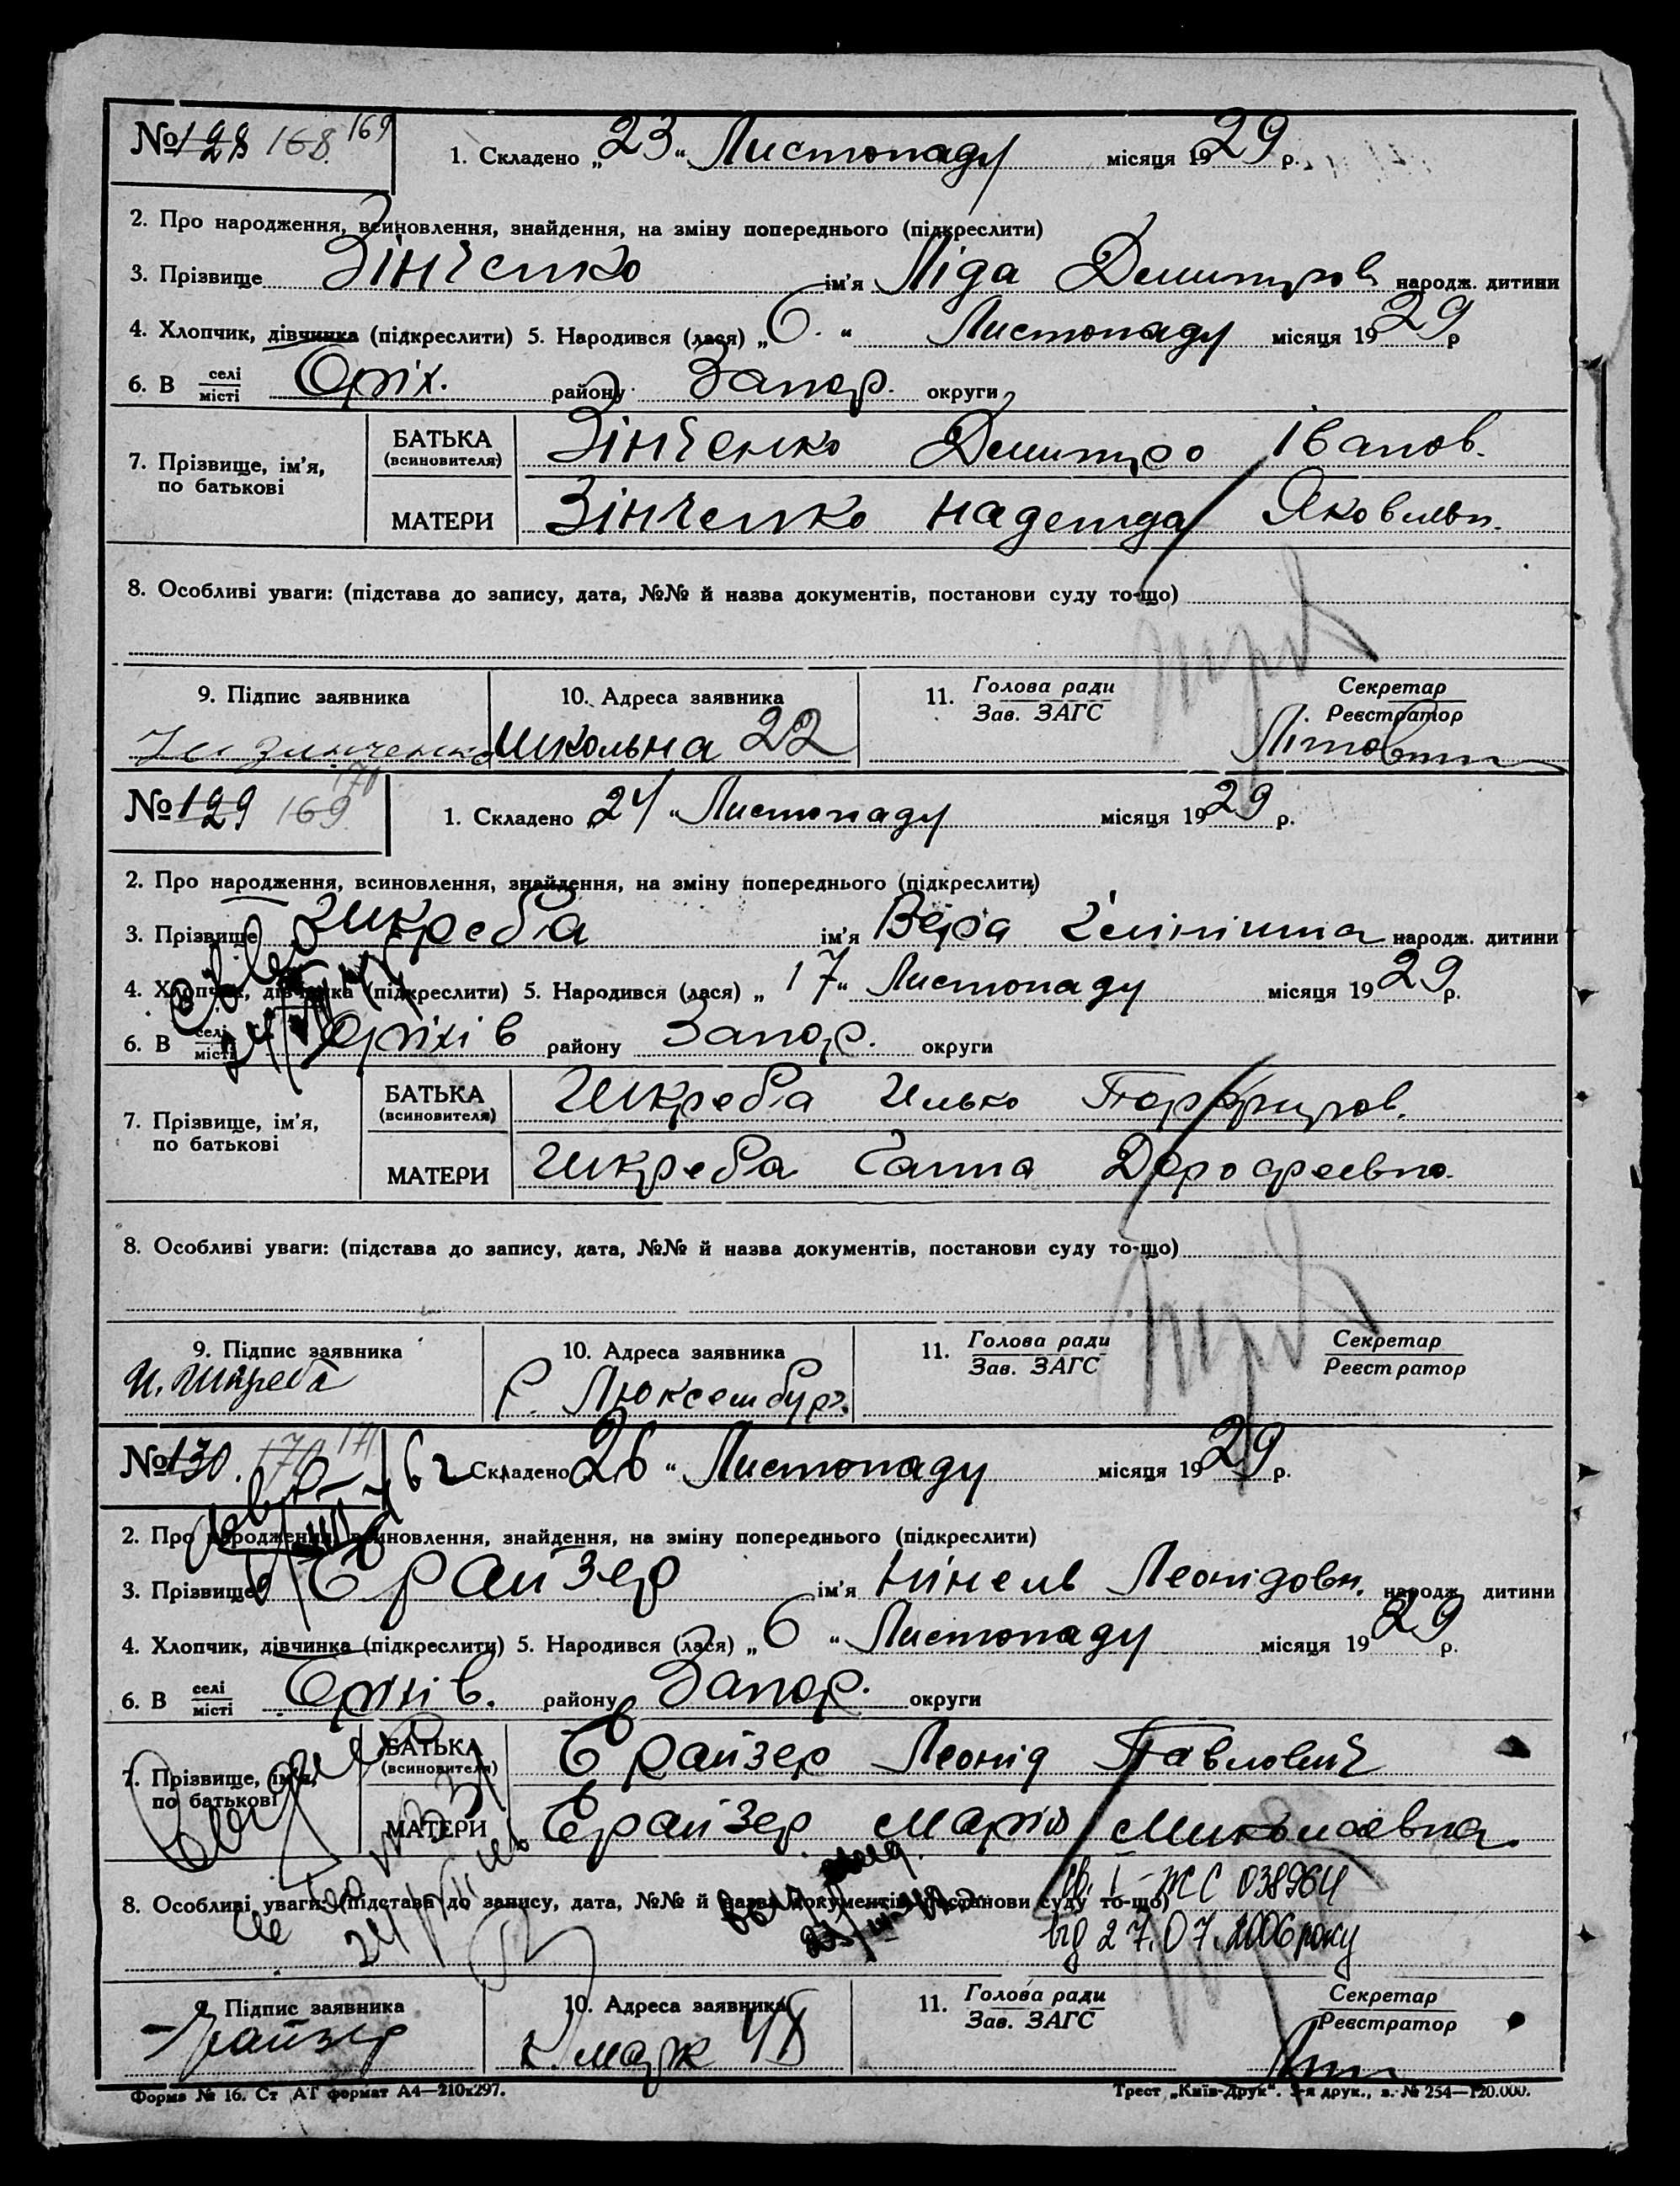 № 128 168 169
1. Складено „23“ Листопаду місяця 1929 р.
2. Про народження, всиновлення, знайдення, на зміну попереднього (підкреслити)
3. Прізвище Зінченко ім'я Ліда Демитров народж. дитини
4. Хлопчик, дівчинка (підкреслити) 5. Народився (лася) „6.“ Листопаду місяця 1929 р
6. В селі місті Оріх. району Запор. округи
7. Прізвище, ім'я, по батькові
БАТЬКА (всиновителя) Зінченко Демитро Іванов.
МАТЕРИ Зінченко Надежда Яковлевн.
8. Особливі уваги: (підстава до запису, дата, №№ й назва документів, постанови суду то-що)
9. Підпис заявника 10. Адреса заявника 11. Голова ради Зав. ЗАГС Секретар Реєстратор
Зинченко Школьна 22
№ 129 169 170
1. Складено „24“ Листопаду місяця 1929 р.
2. Про народження, всиновлення, знайдення, на зміну попереднього (підкреслити)
3. Прізвище Шкреба ім'я Вера народж. дитини
4. Хлопчик, дівчинка (підкреслити) 5. Народився (лася) „17“ Листопаду місяця 1929 р.
6. В селі місті Оріхів району Запор. округи
7. Прізвище, ім'я, по батькові
БАТЬКА (всиновителя) Шкреба Илько Порфиров.
МАТЕРИ Шкреба Ганна Дорофеевна.
8. Особливі уваги: (підстава до запису, дата, №№ й назва документів, постанови суду то-що)
9. Підпис заявника 10. Адреса заявника 11. Голова ради Зав. ЗАГС Секретар Реєстратор
И. Шкреба Р. Люксембург.
№ 130. 170 171
Складено 26 “ Листопаду місяця 1929 р.
2. Про народження, всиновлення, знайдення, на зміну попереднього (підкреслити)
3. Прізвище Брайзер ім'я Нінель Леонідовн. народж дитини
4. Хлопчик, дівчинка (підкреслити) 5. Народився (лася) „6“ Листопаду місяця 1929 р.
6. В селі місті Оріхів. району Запор. округи
7. Прізвище, ім'я, по батькові
БАТЬКА (всиновителя) Брайзер Леонід Павлович
МАТЕРИ Брайзер Марія Миколаевна.
І-ЖС 038964
8. Особливі уваги: (підстава до запису, дата, №№ й назва документів, постанови суду то-що)
від 27.07.2006 року
9. Підпис заявника 10. Адреса заявника 11. Голова ради Зав. ЗАГС Секретар Реєстратор
К. Марк
Форма № 16. Ст АТ формат А4—210х297. Трест „Київ-Друк“. 3-я друк., з. № 254—120.000.